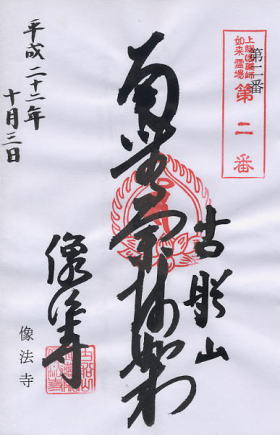 第二番
上総国薬師
如来霊場
第二番
南無薬師如来
像法寺
像法寺
平成二十二年
十月三日